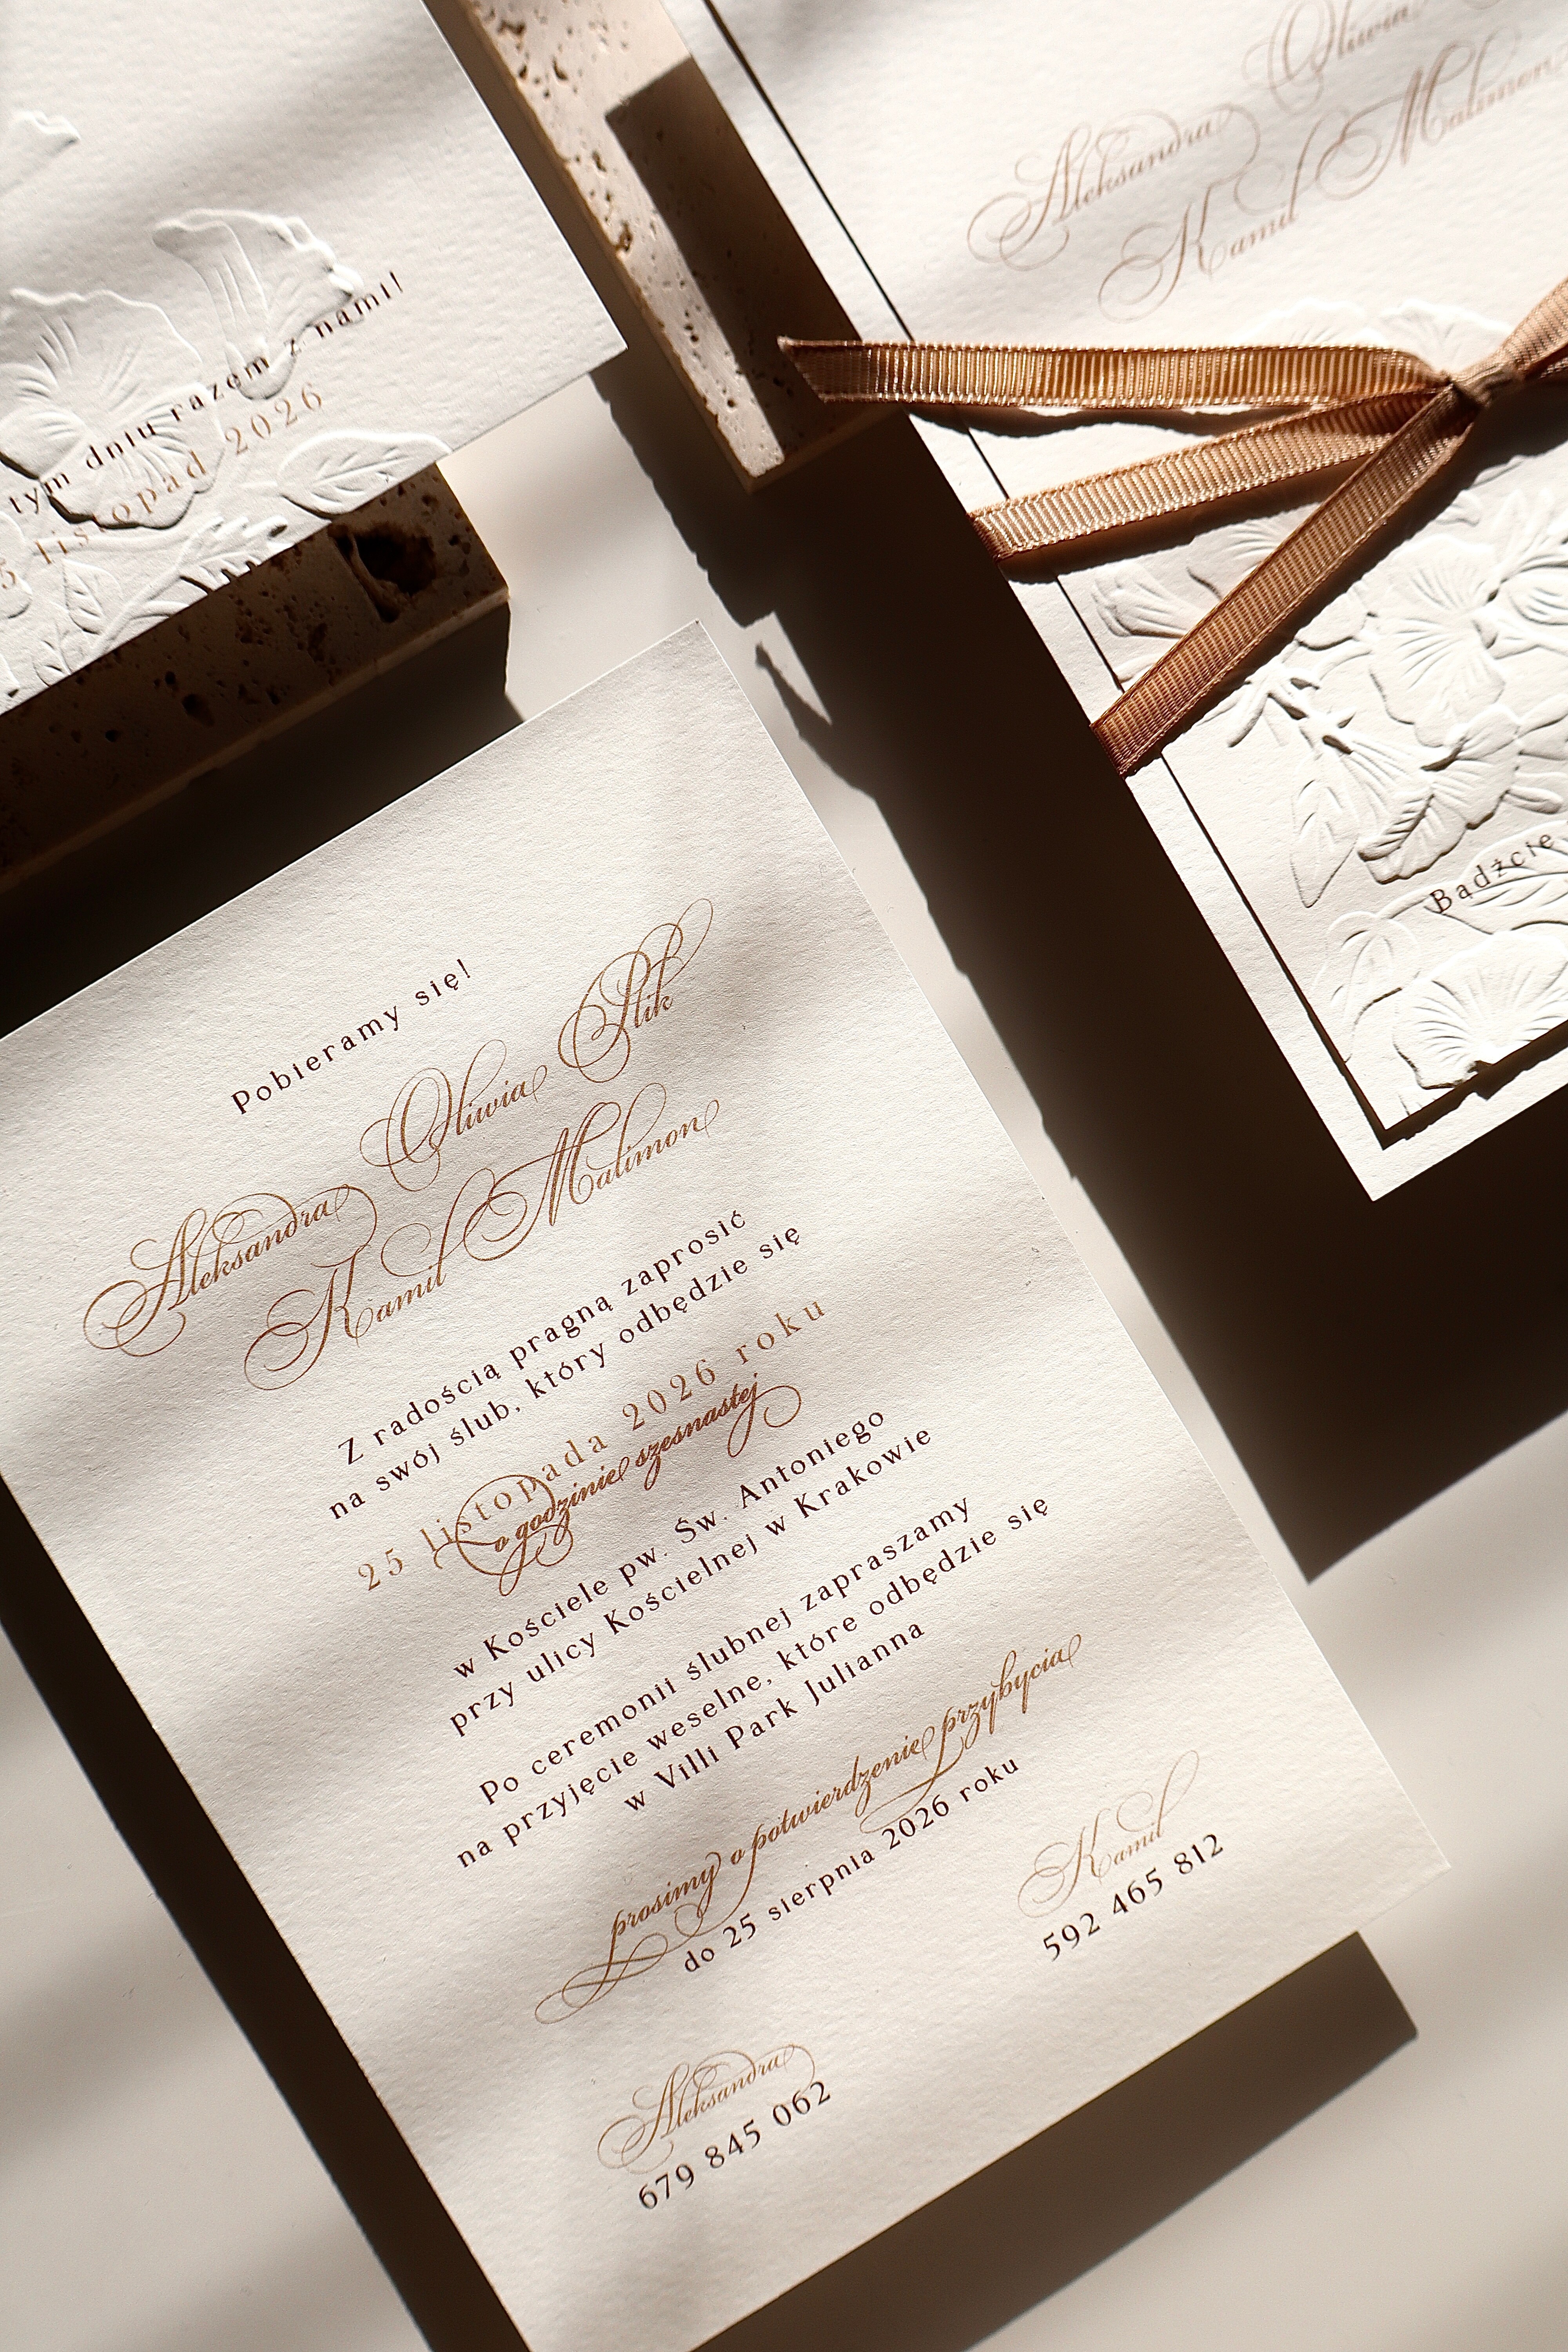 tym dniu razem z nami!
5 listopad 2026
Aleksandra Oliwia
Kamil Malimon
Bądźcie
Pobieramy się!
Aleksandra Oliwia Plik
Kamil Malimon
Z radością pragną zaprosić
na swój ślub, który odbędzie się
25 listopada 2026 roku
o godzinie szesnastej
w Kościele pw. Św. Antoniego
przy ulicy Kościelnej w Krakowie
Po ceremonii ślubnej zapraszamy
na przyjęcie weselne, które odbędzie się
w Villi Park Julianna
prosimy o potwierdzenie przybycia
do 25 sierpnia 2026 roku
Aleksandra
679 845 062
Kamil
592 465 812